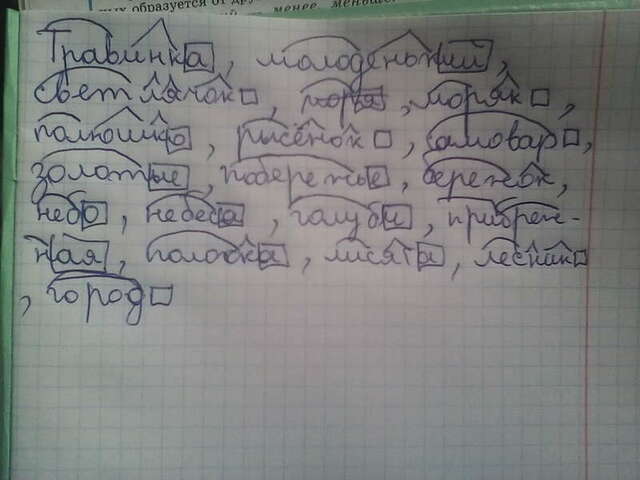 ных образуется от дру
менее, меньше
Травинка, молоденький,
светлячок, моря, моряк,
полюшко, рысёнок, самовар,
золотые, побережье, бережок,
небо, небеса, голуби, прибреж-
ная, полоска, лисята, лесник
, город